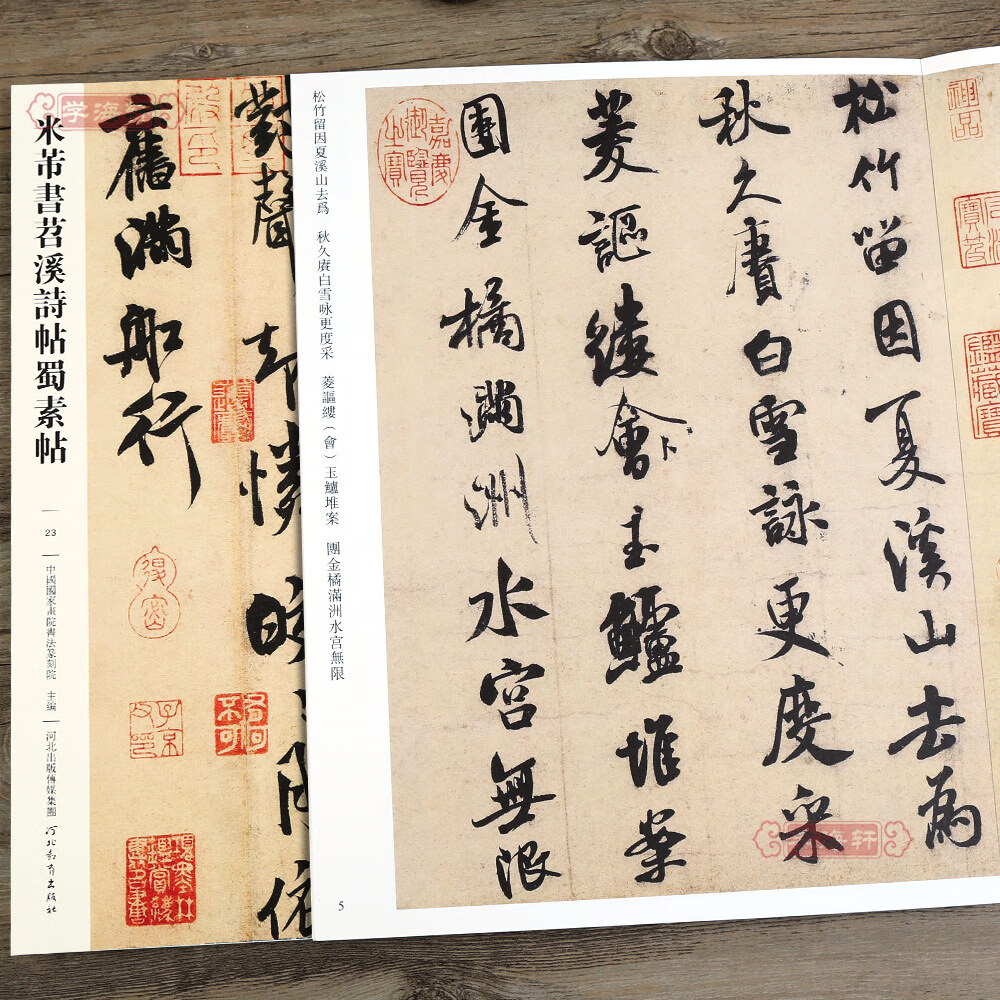 松竹留因夏溪山去為
秋久賡白雪詠更度采
菱謳縷會玉鱸堆案
團金橘滿洲水宮無限
松竹留因夏溪山去爲　秋久賡白雪咏更度采　菱謳縷（會）玉鱸堆案　團金橘滿洲水宫無限
5
嘉慶御覽之寶
神品
鑑藏寶
懶聲
舊滿船行
米芾書苕溪詩帖蜀素帖
23
中國國家畫院書法篆刻院 主编
河北出版傳媒集團
河北教育出版社
学海轩
海轩